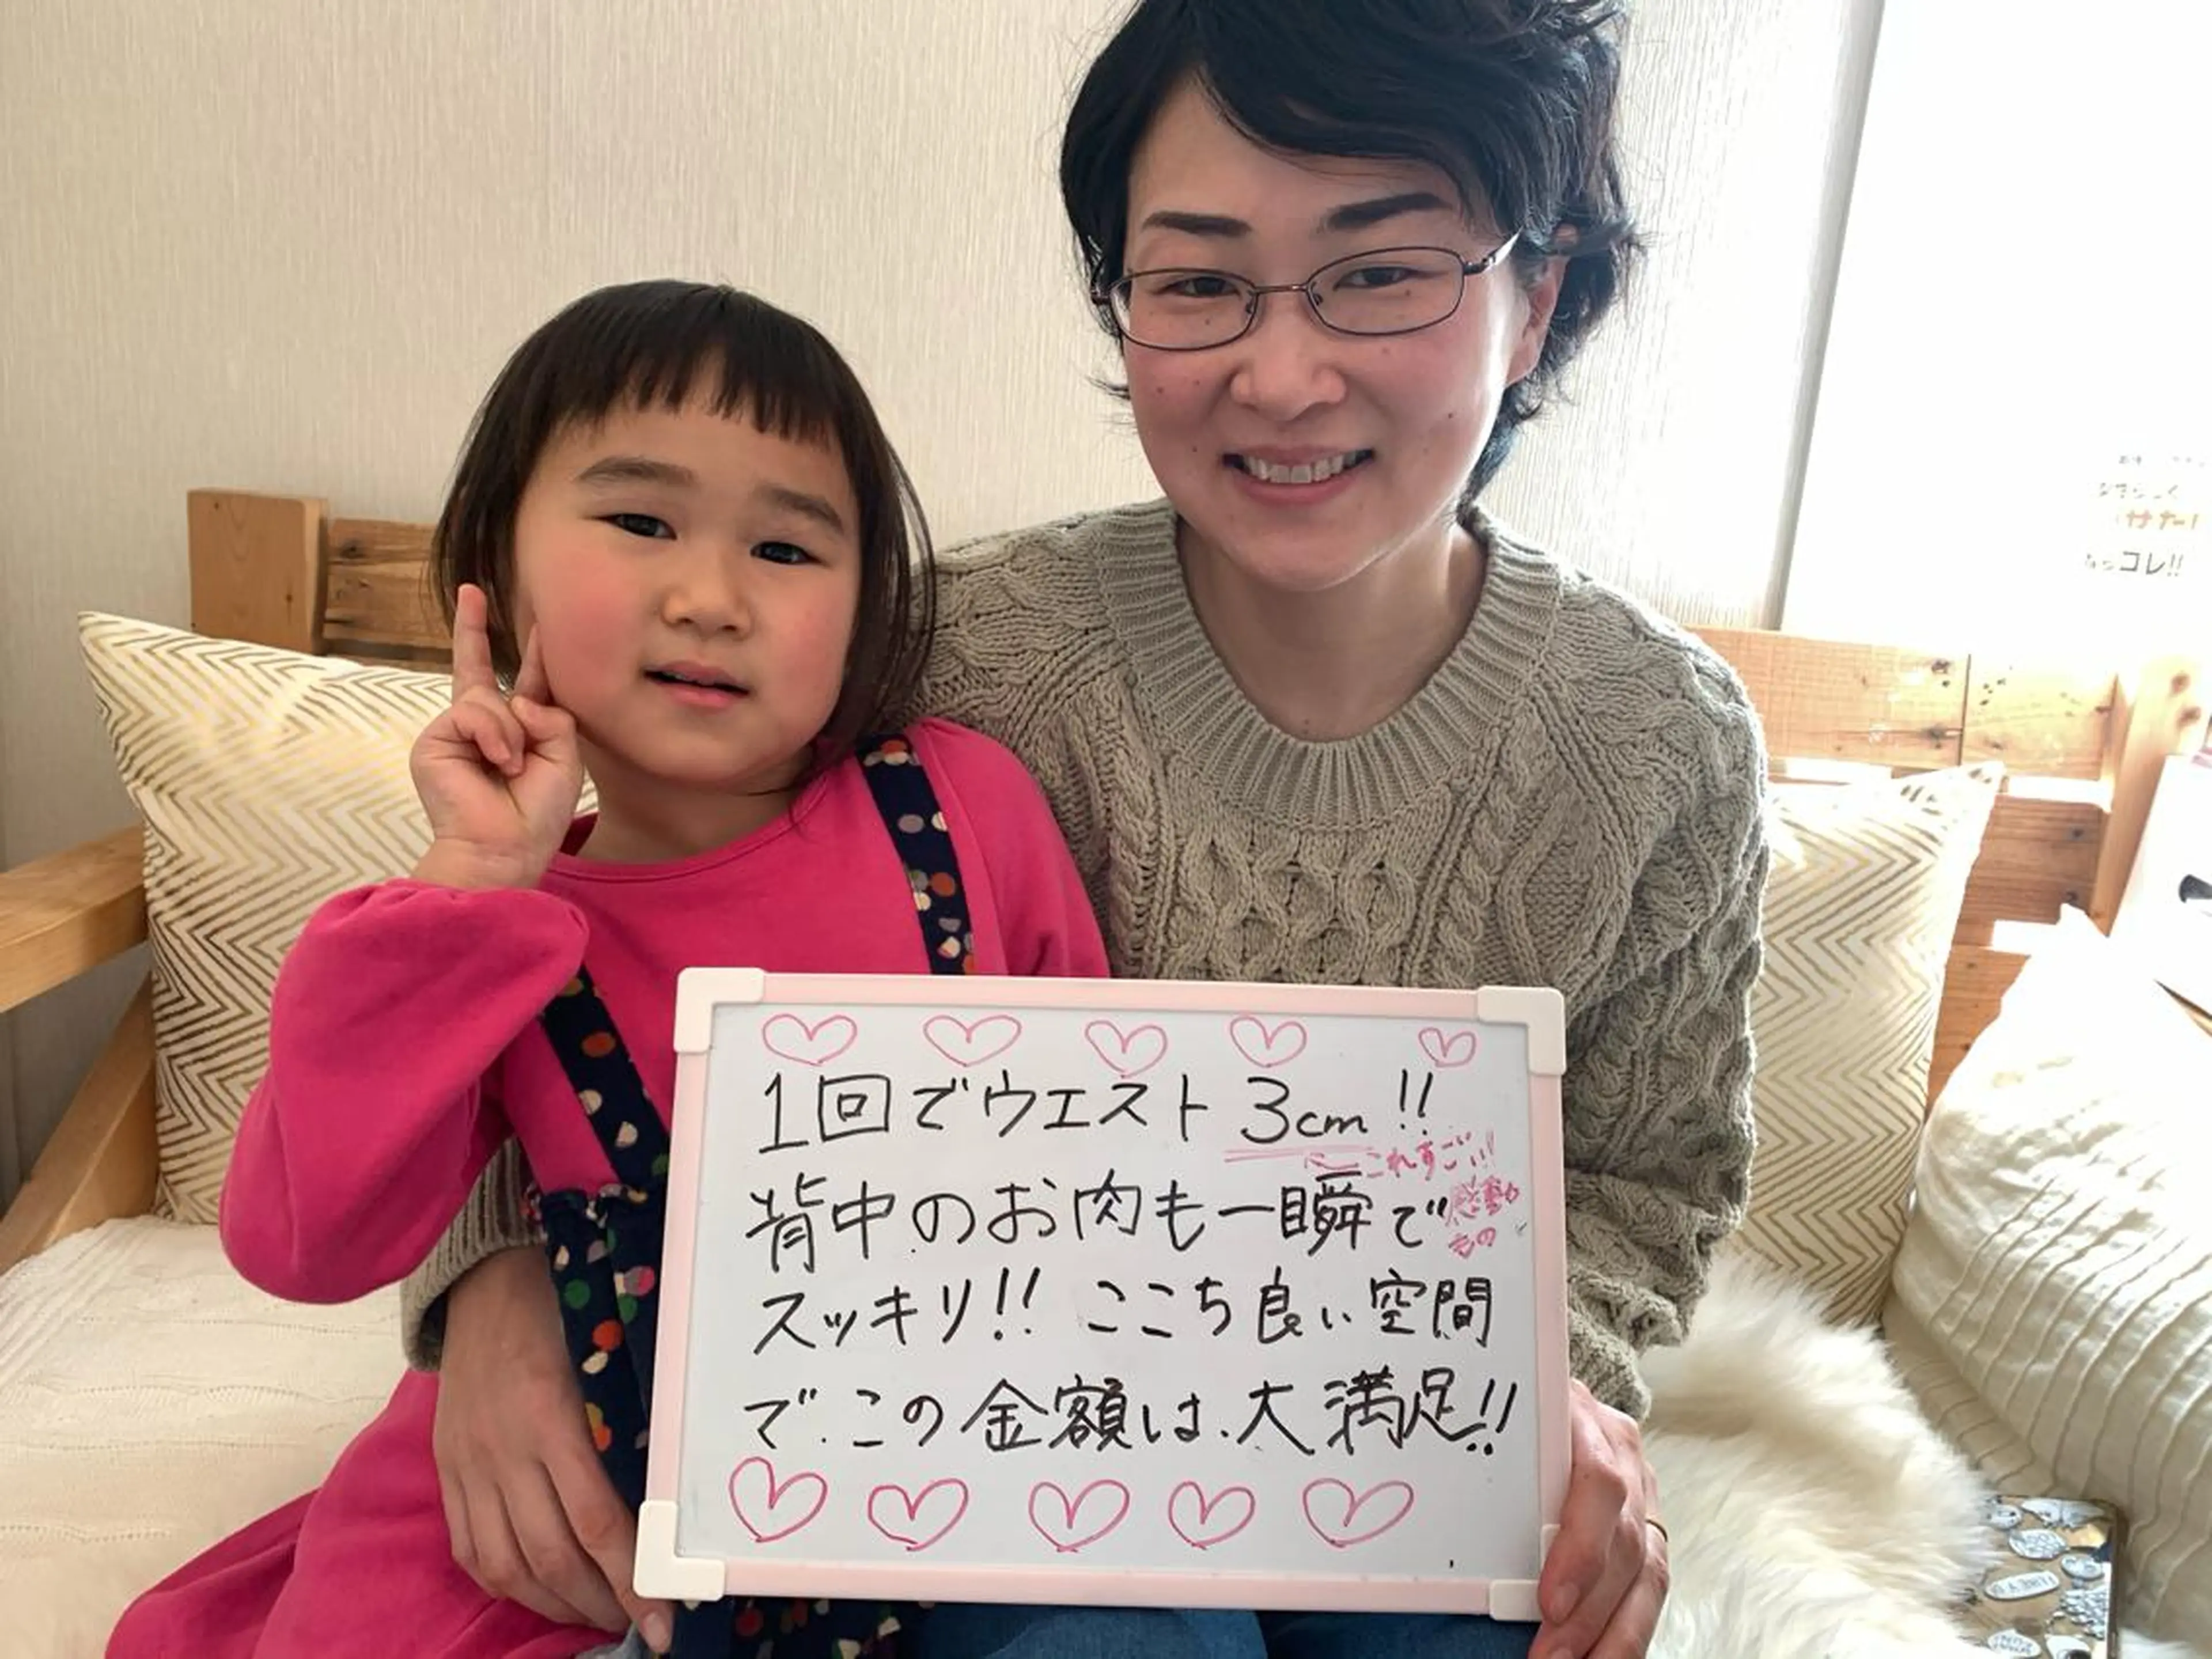 1回でウエスト3cm!!
これすごい!!
背中のお肉も一瞬で
感動もの
スッキリ!! ここち良い空間
で.この金額は.大満足!!
コレ!!